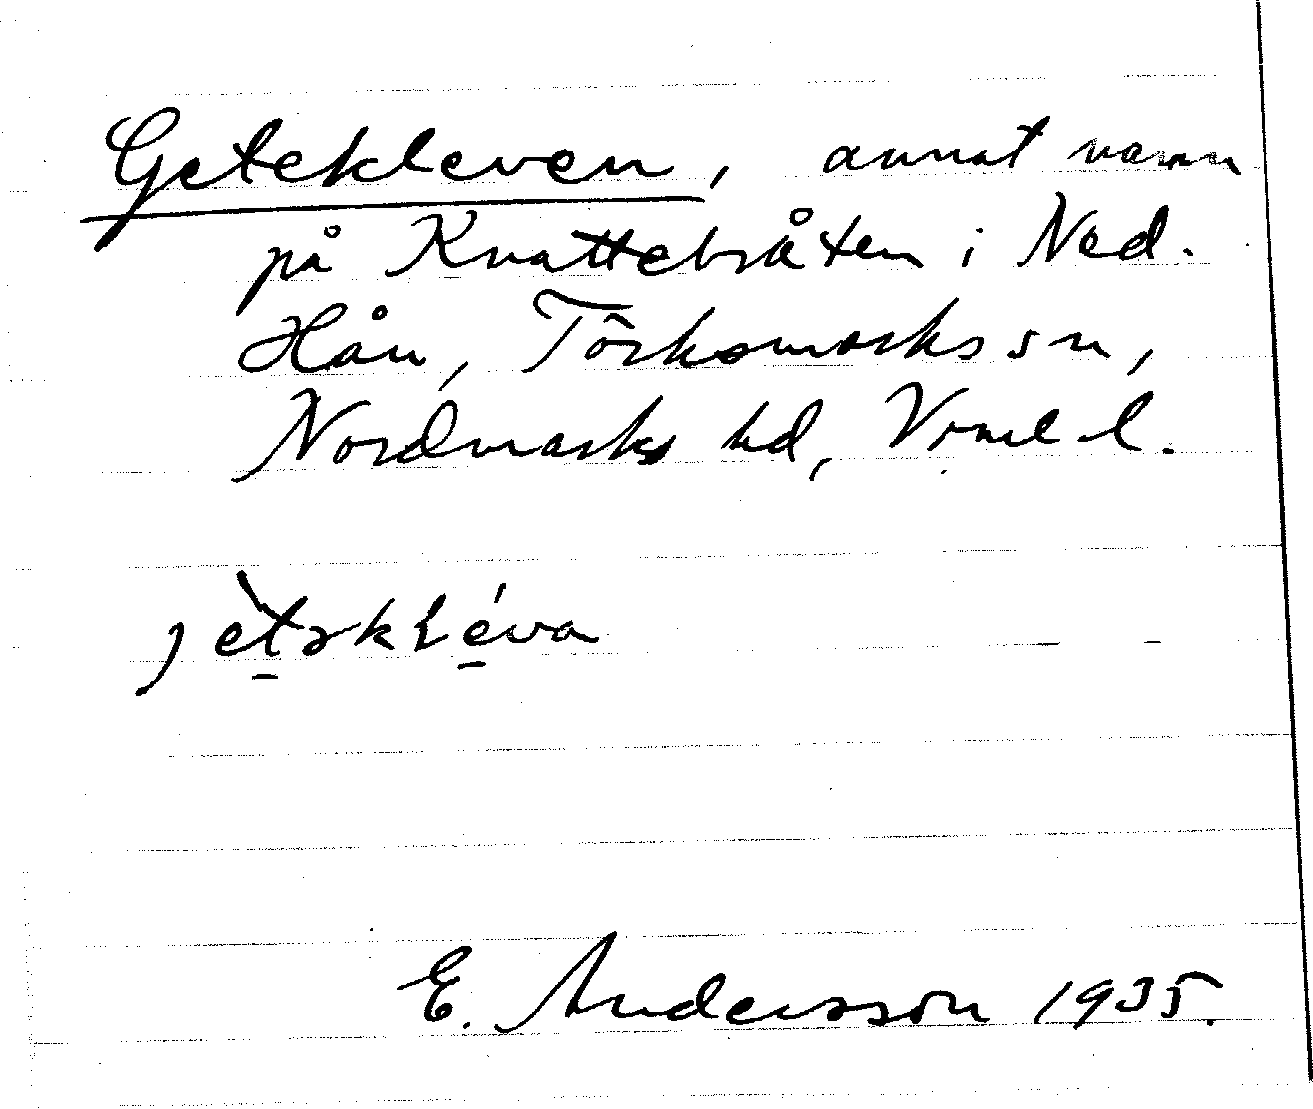 Getekleven, annat namn
på Knattebråten i Ned.
Hån, Töcksmarks sn,
Nordmarks hd, Värml l.
jètəkɫéva
E. Andersson 1935.